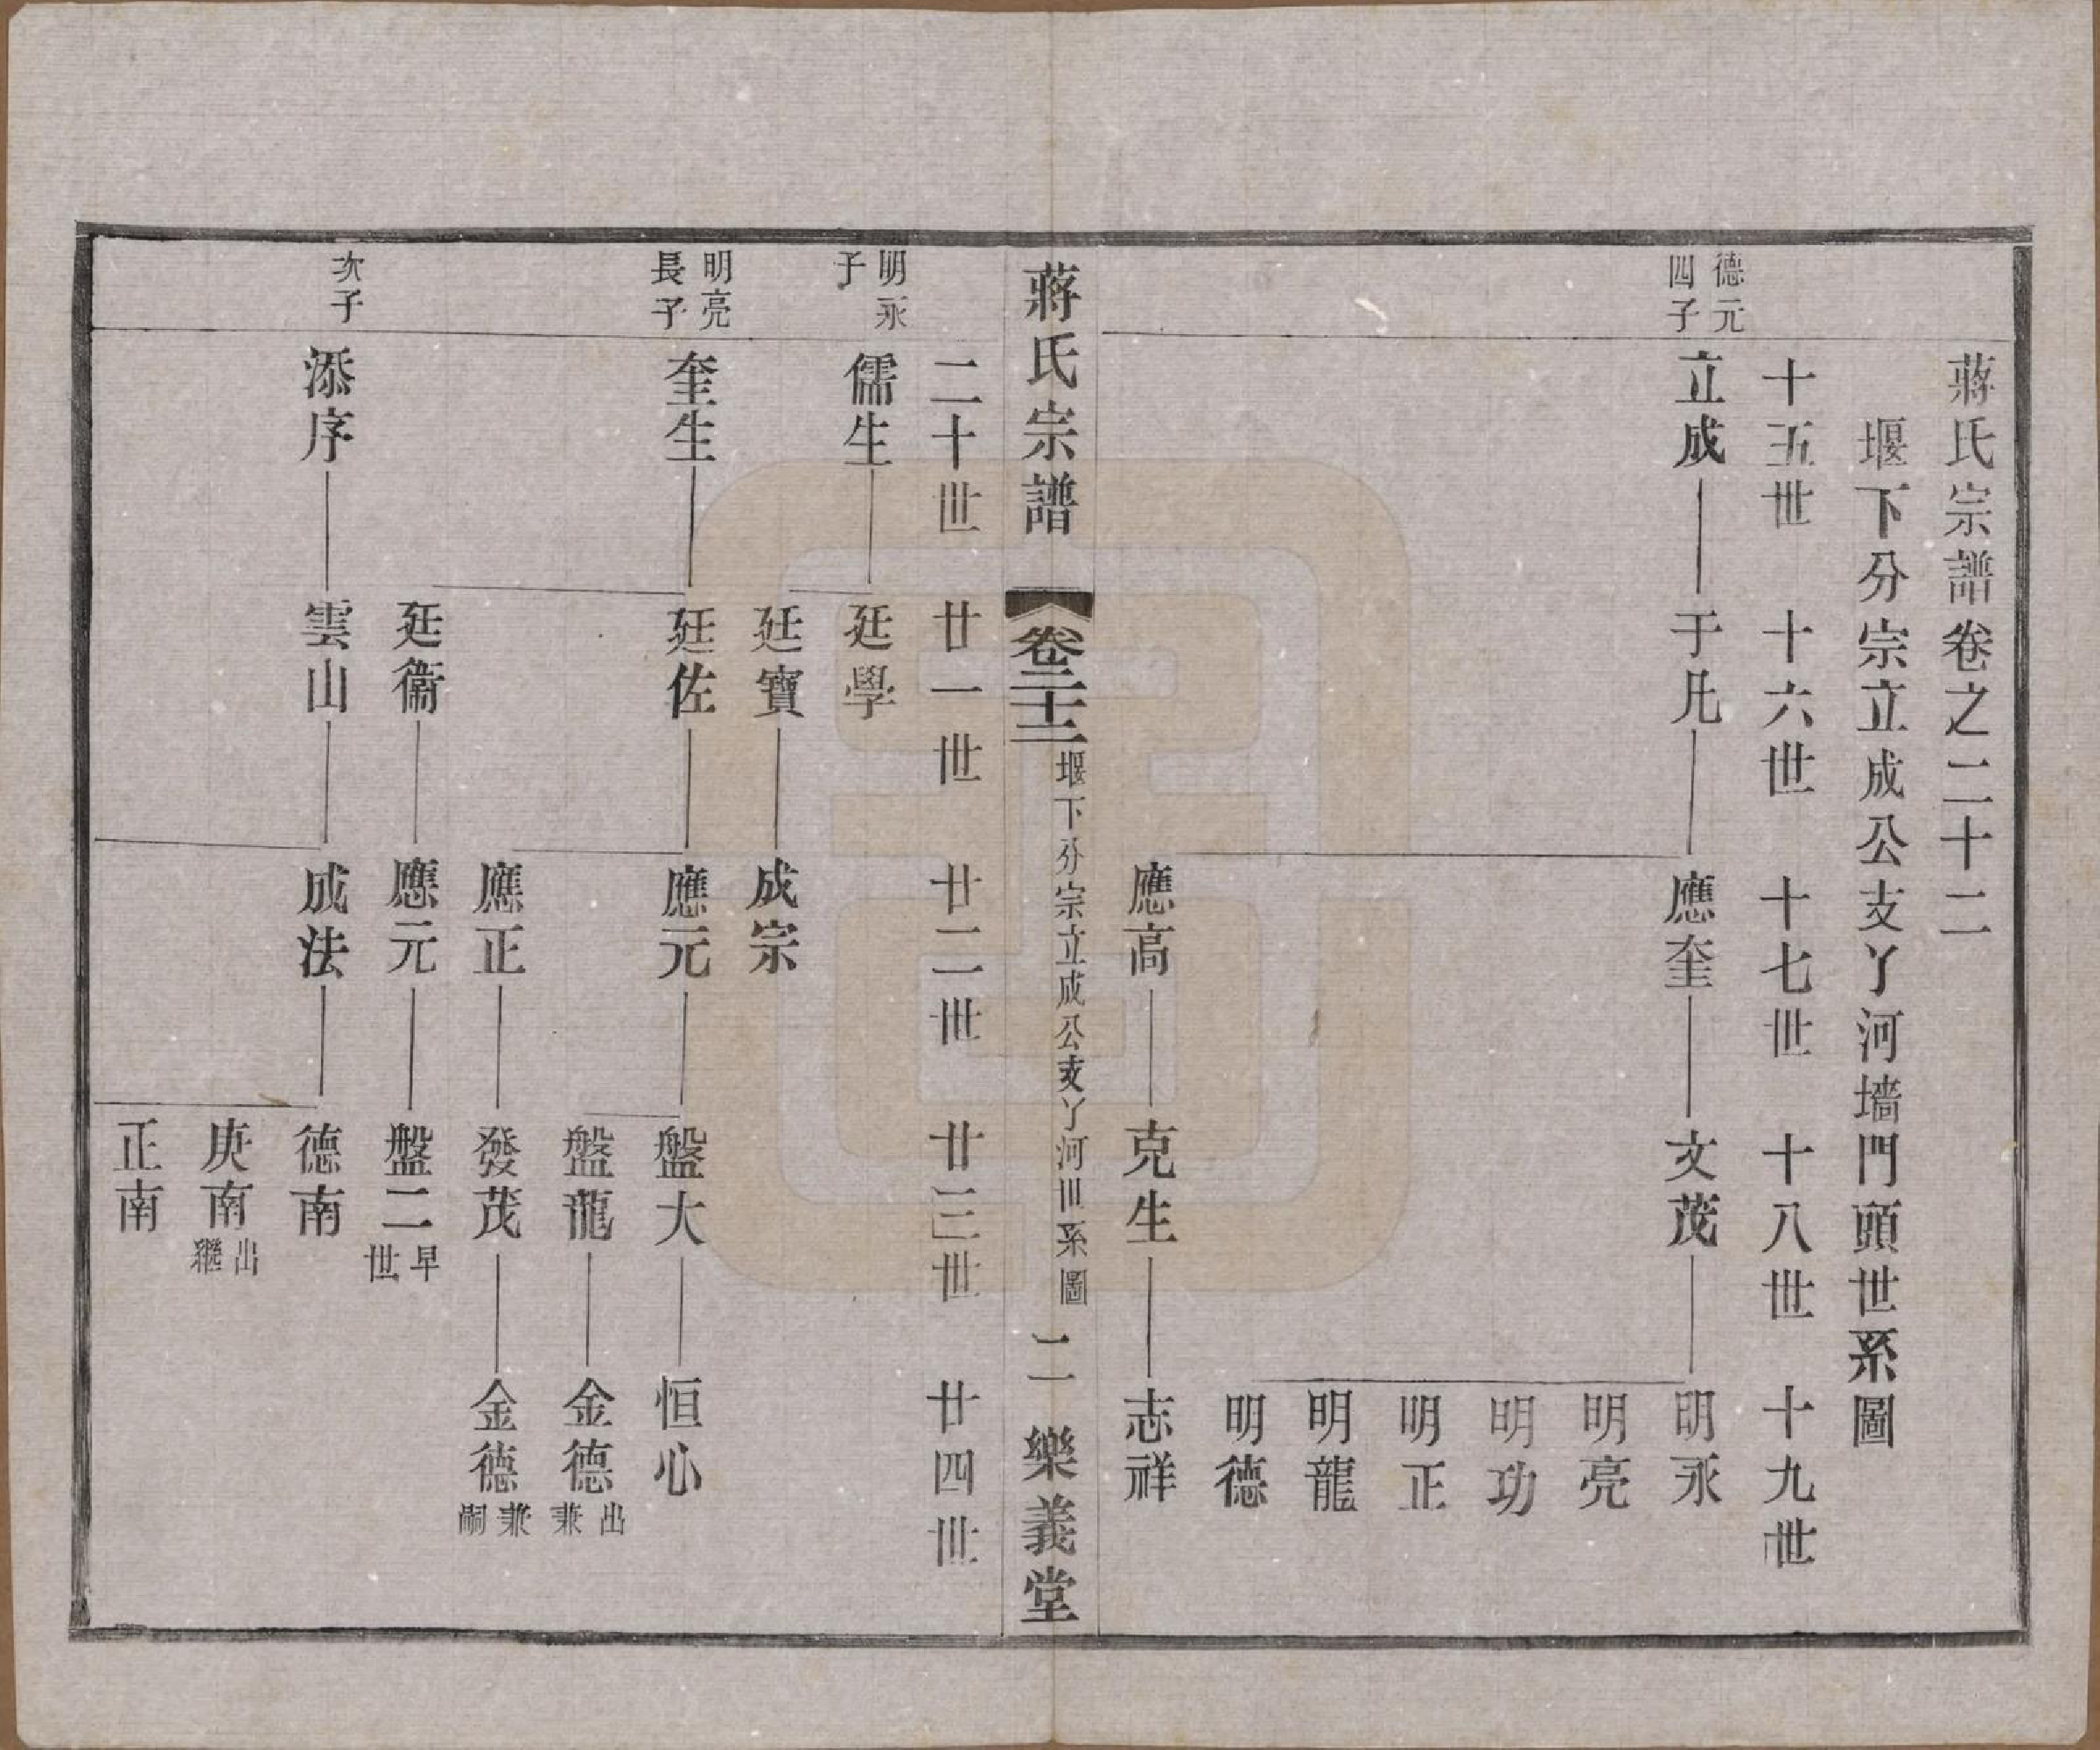 蔣氏宗譜卷之二十二
堰下分宗立成公支丫河墻門頭世系圖
十五世 十六世 十七世 十八世 十九世
德元四子 立成 于凡 應奎 文茂 明永
明亮
明功
明正
明龍
明德
應高 克生 志祥
蔣氏宗譜 卷二十二 堰下分宗立成公支丫河世系圖 二 樂義堂
二十世 廿一世 廿二世 廿三世 廿四世
明永子 儒生 廷學
廷寶 成宗
明亮長子 奎生 廷佐 應元 盤大 恒心
盤龍 金德 出兼
應正 發茂 金德 兼嗣
廷衞 應元 盤二 早世
次子 添序 雲山 成法 德南
庚南 出繼
正南